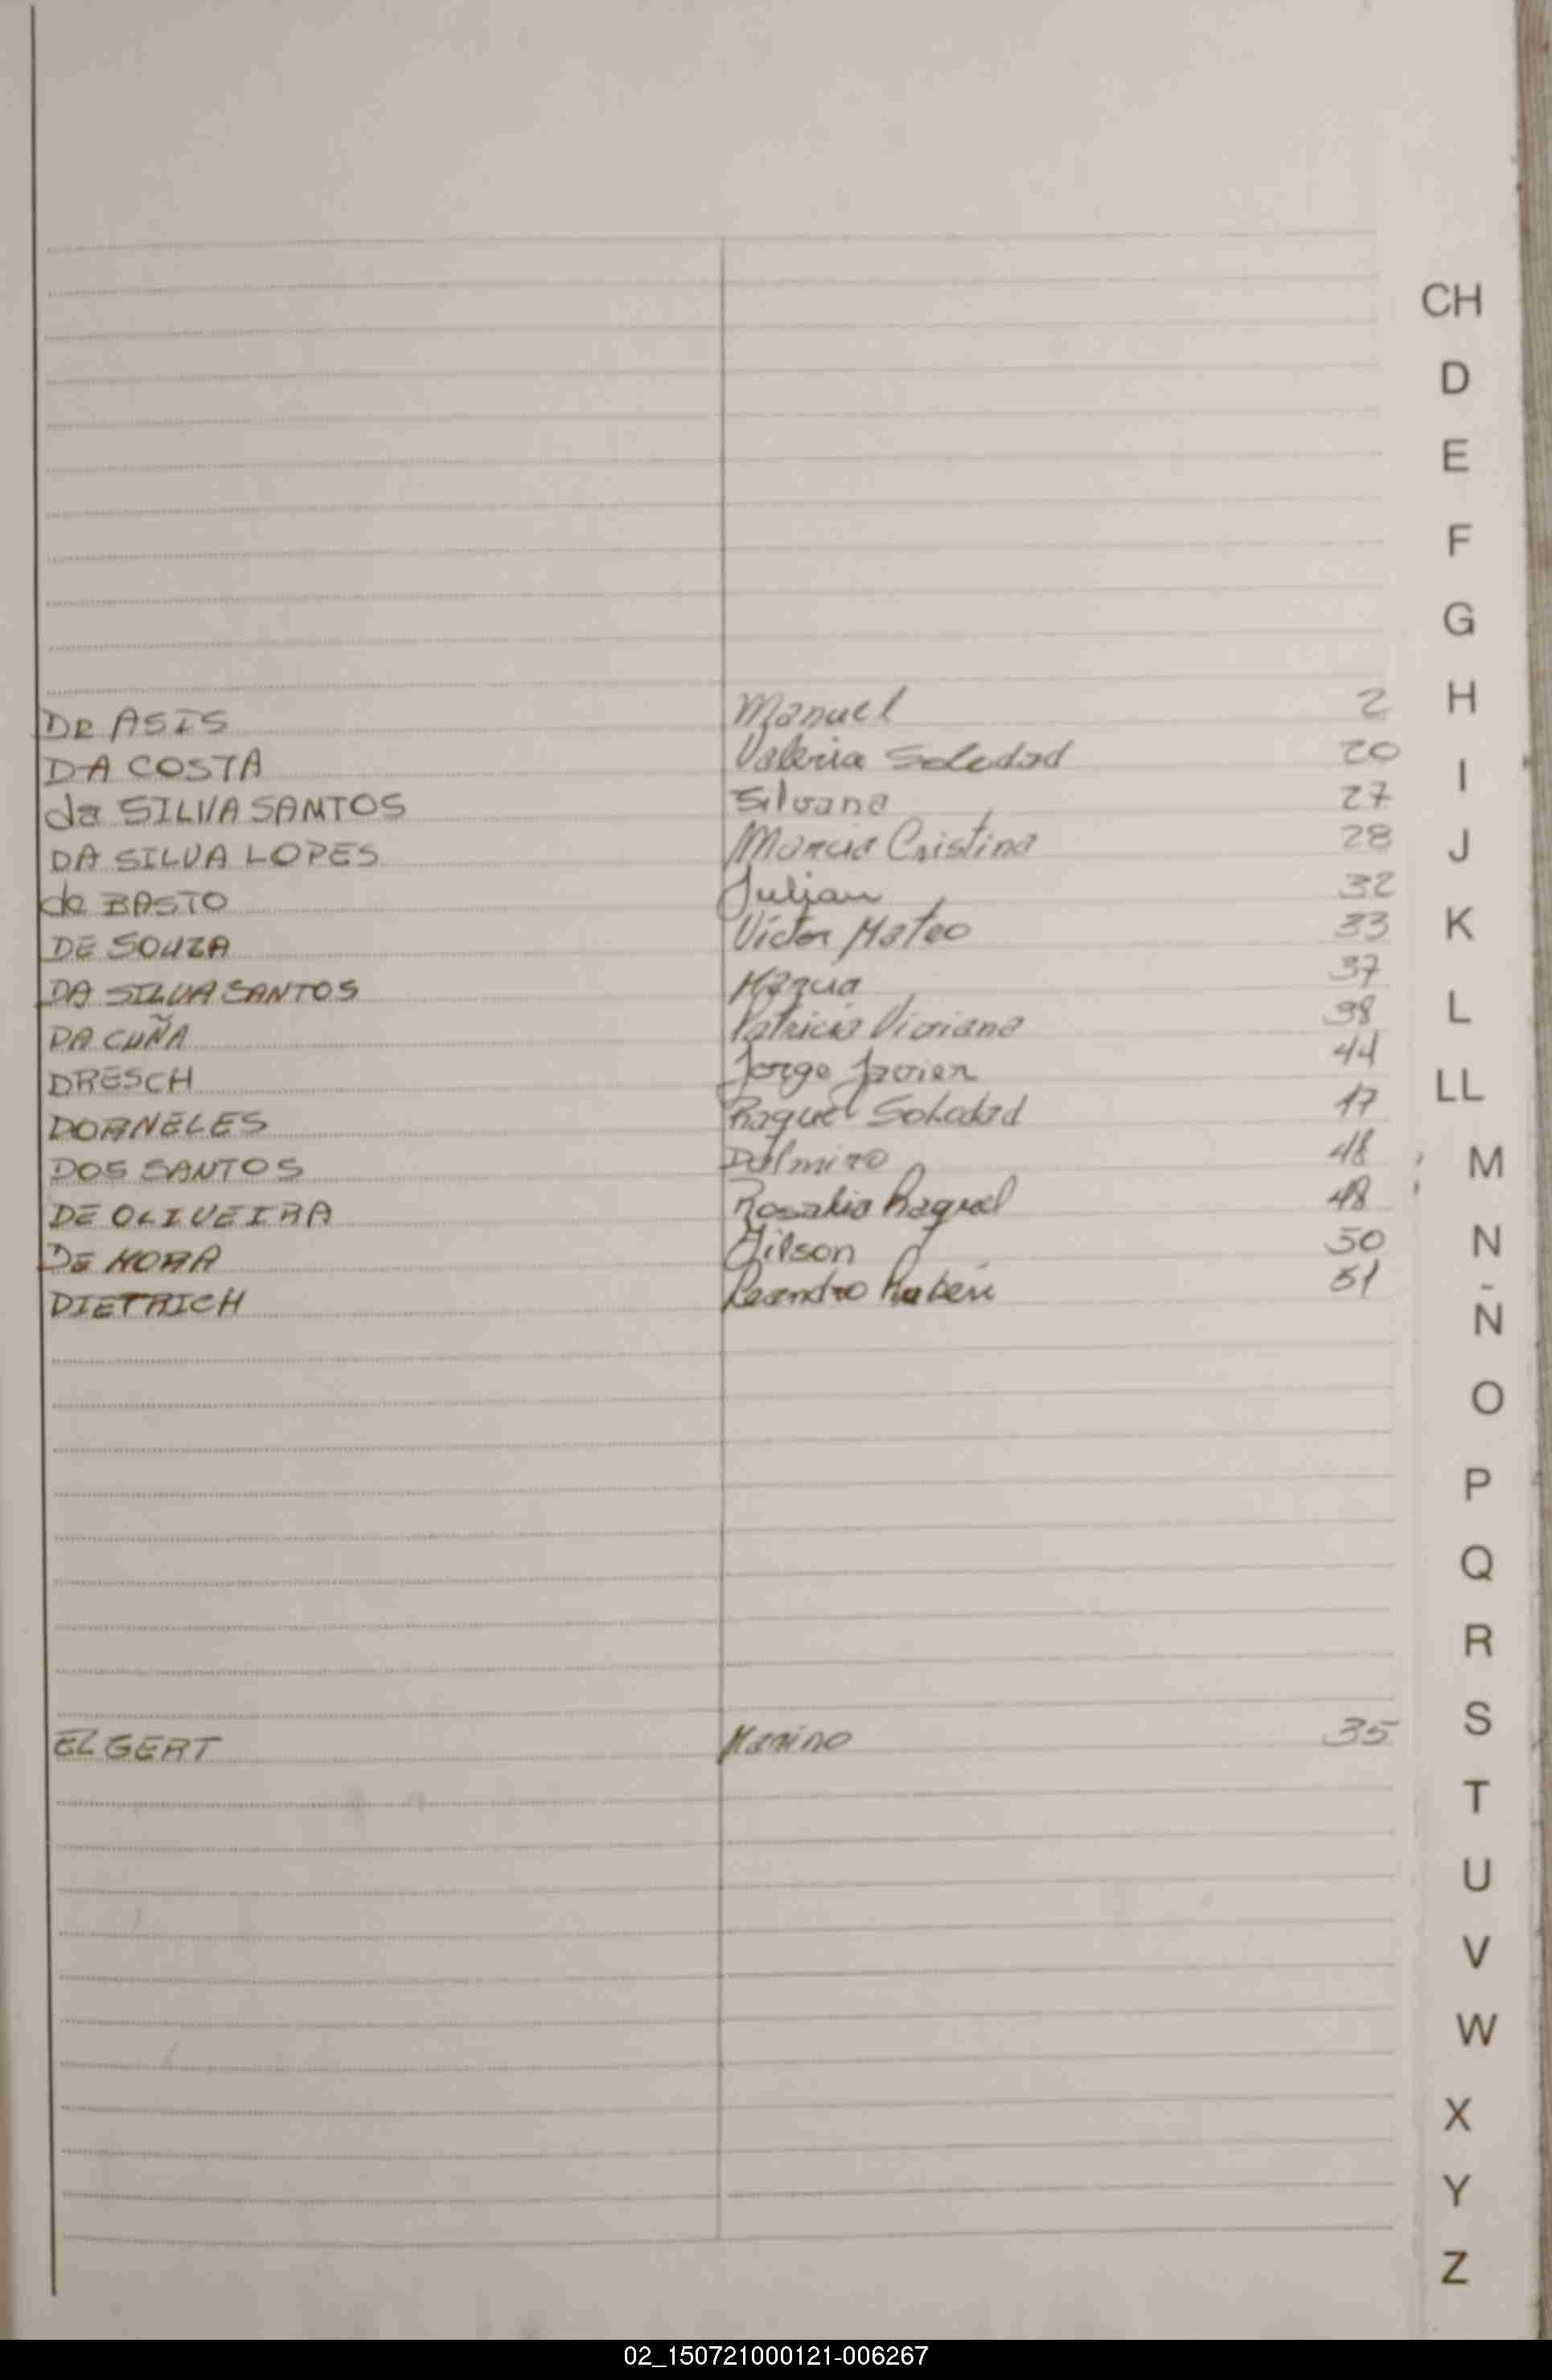 CH
D
E
F
G
De ASIS Manuel 2 H
DA COSTA Valeria Soledad 20 I
da SILVA SANTOS Silvana 27
DA SILVA LOPES Marcia Cristina 28 J
de BASTO Julian 32
DE SOUZA Víctor Mateo 33 K
DA SILVA SANTOS 37
DA CUÑA Patricia Viviana 38 L
DRESCH Jorge Javier 44 LL
DORNELES Raquel Soledad 17
DOS SANTOS Dalmiro 48 M
DE OLIVEIRA Rosalia Raquel 48
DE MORA Gilson 50 N
DIETRICH Leandro Rubén 51 Ñ
O
P
Q
R
S
ELGERT Marino 35
T
U
V
W
X
Y
Z
02_150721000121-006267